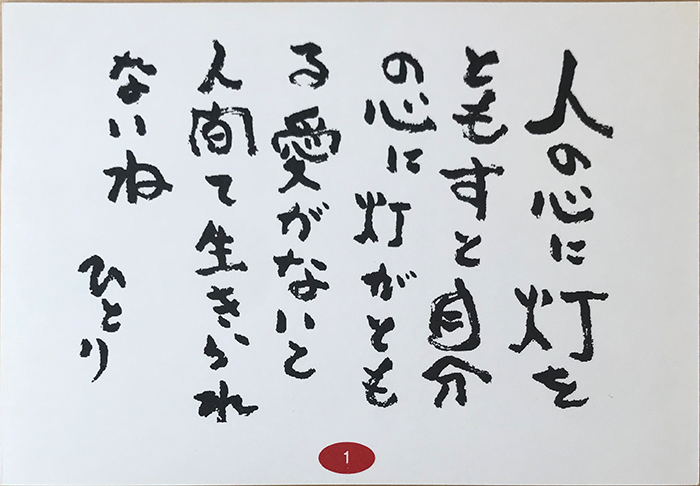 人の心に灯を
ともすと自分
の心に灯がとも
る愛がないと
人間て生きられ
ないね
ひとり
1